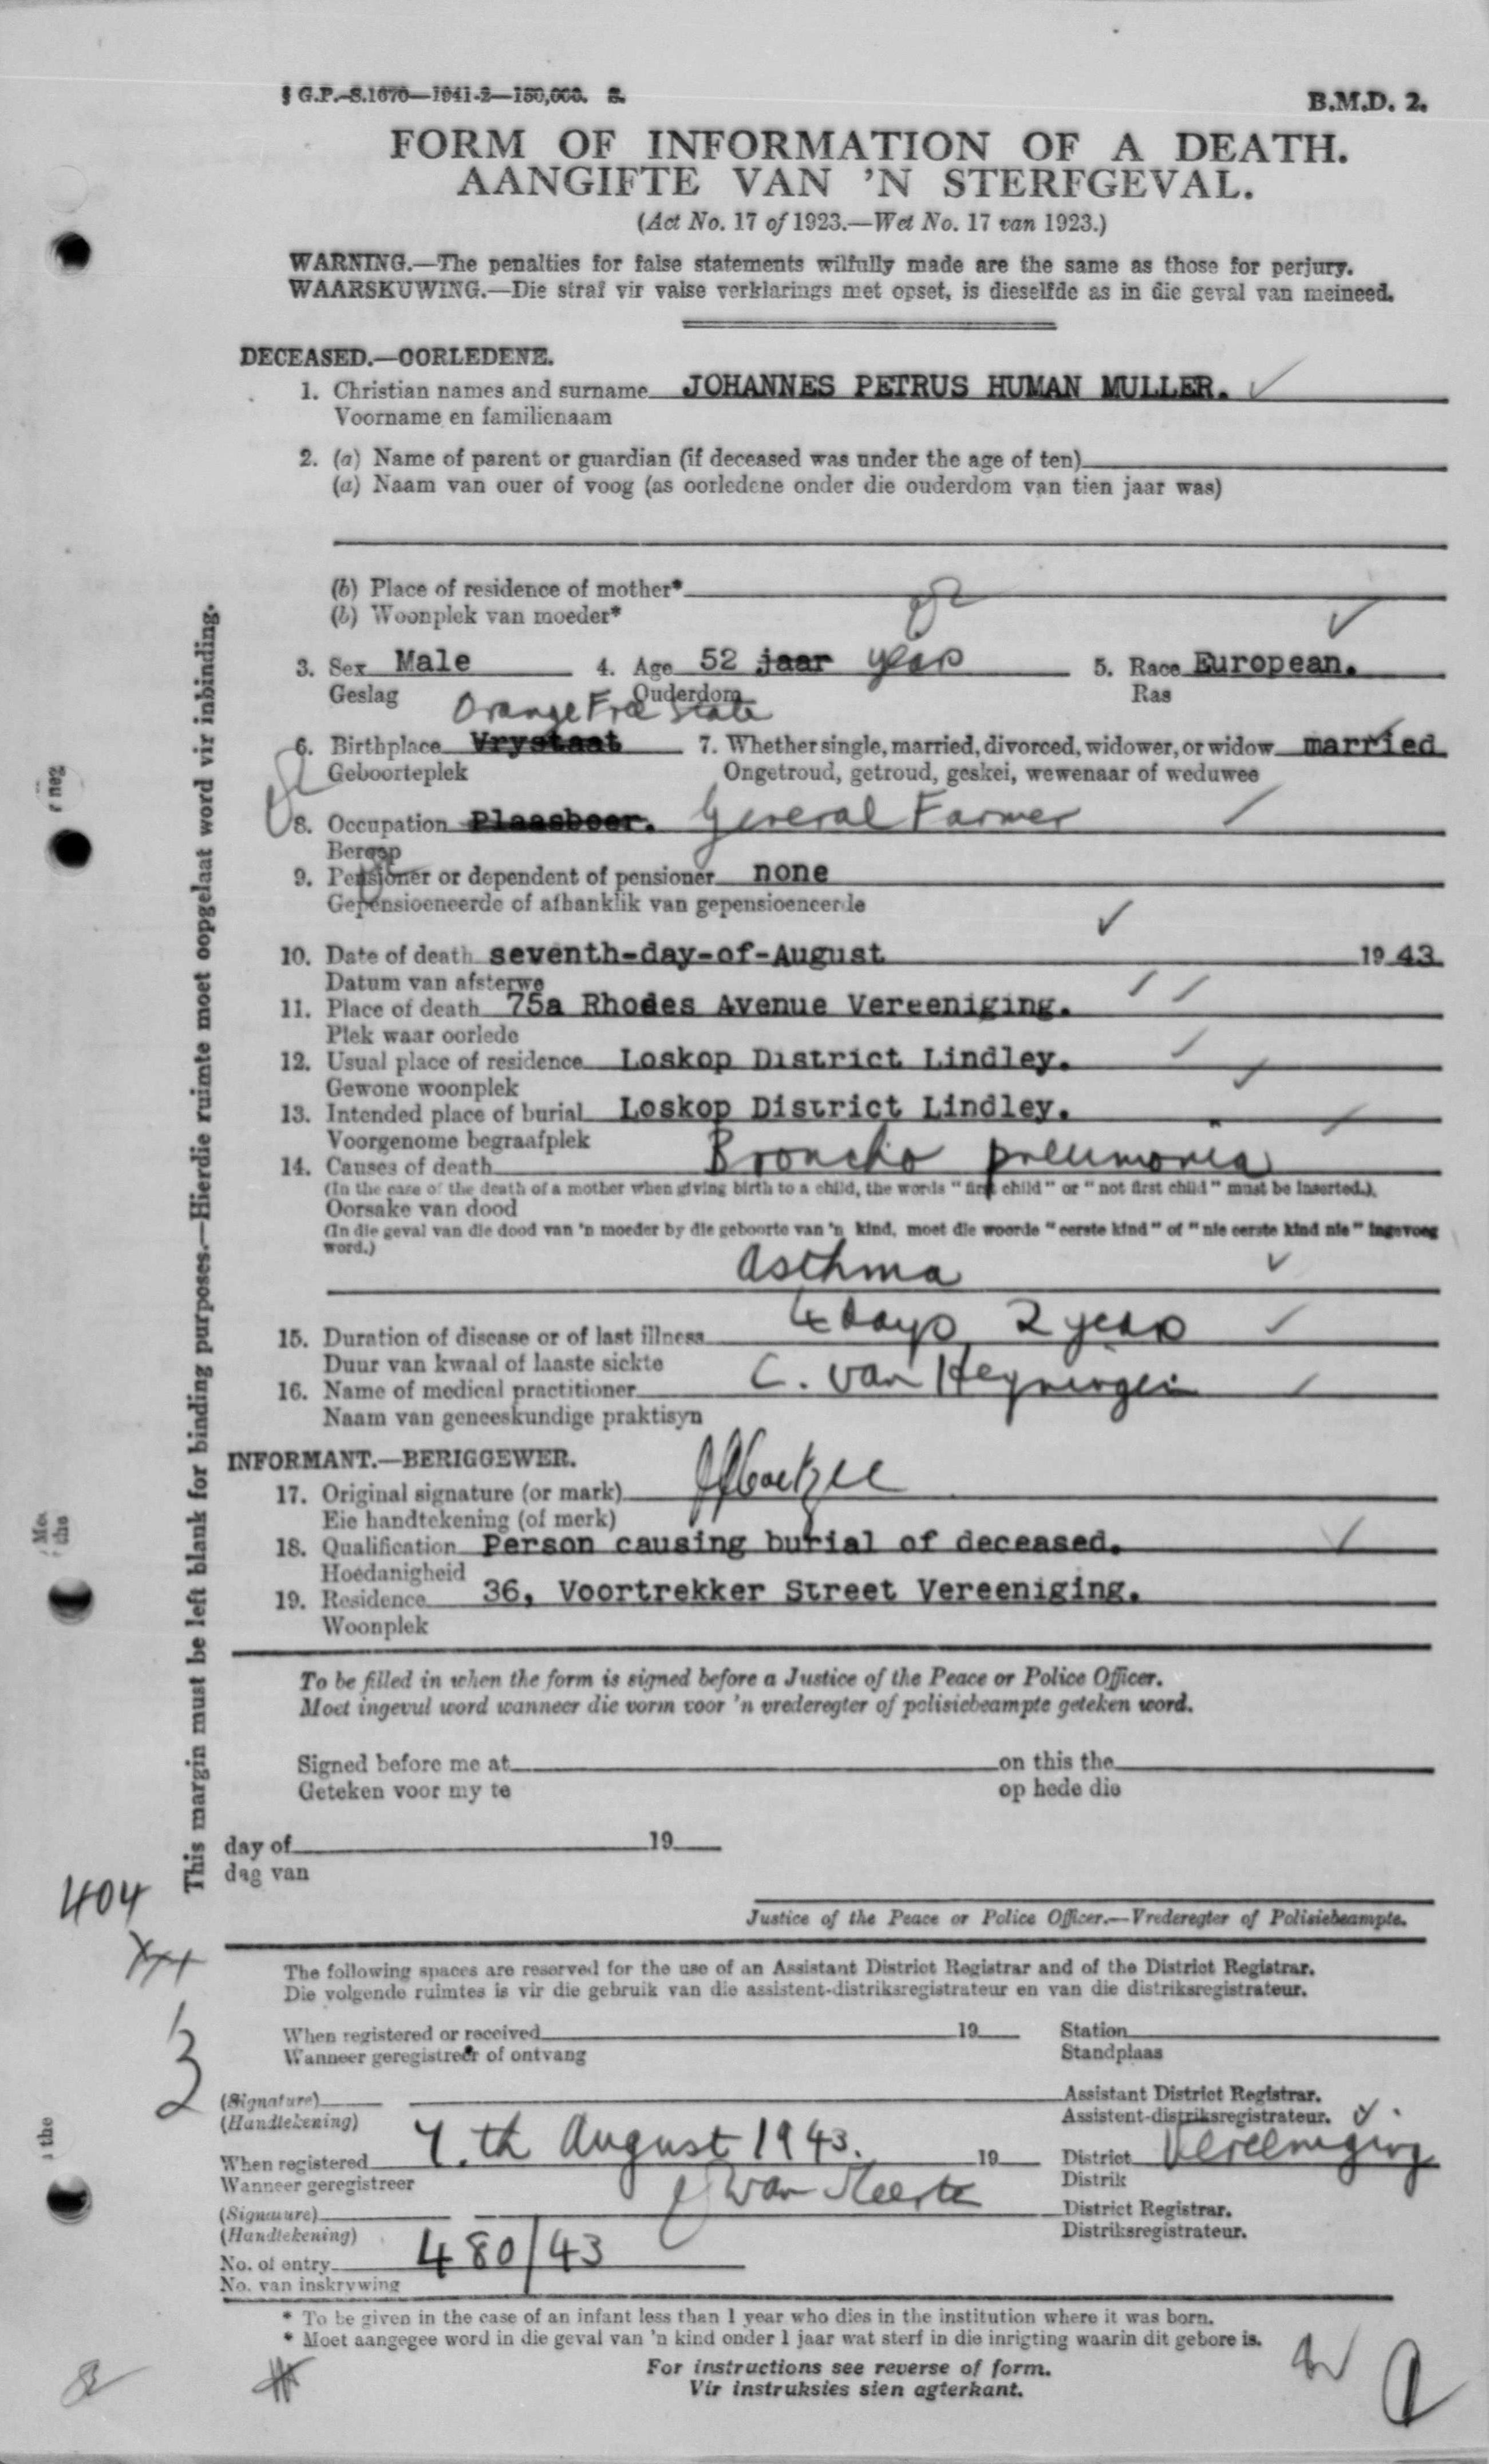 § G.P.-S.1670—1941-2—150,000. S.
B.M.D. 2.
FORM OF INFORMATION OF A DEATH.
AANGIFTE VAN 'N STERFGEVAL.
(Act No. 17 of 1923.—Wet No. 17 van 1923.)
WARNING.—The penalties for false statements wilfully made are the same as those for perjury.
WAARSKUWING.—Die straf vir valse verklarings met opset, is dieselfde as in die geval van meineed.
DECEASED.—OORLEDENE.
1. Christian names and surname JOHANNES PETRUS HUMAN MULLER.
Voorname en familienaam
2. (a) Name of parent or guardian (if deceased was under the age of ten)
(a) Naam van ouer of voog (as oorledene onder die ouderdom van tien jaar was)
(b) Place of residence of mother*
(b) Woonplek van moeder*
3. Sex Male 4. Age 52 jaar years 5. Race European.
Geslag Ouderdom Ras
Orange Free State
6. Birthplace Vrystaat 7. Whether single, married, divorced, widower, or widow married
Geboorteplek Ongetroud, getroud, geskei, wewenaar of weduwee
8. Occupation Plaasboer. General Farmer
Beroep
9. Pensioner or dependent of pensioner none
Gepensioeneerde of afhanklik van gepensioeneerde
10. Date of death seventh-day-of-August 1943
Datum van afsterwe
11. Place of death 75a Rhodes Avenue Vereeniging.
Plek waar oorlede
12. Usual place of residence Loskop District Lindley.
Gewone woonplek
13. Intended place of burial Loskop District Lindley.
Voorgenome begraafplek
14. Causes of death Broncho pneumonia
(In the case of the death of a mother when giving birth to a child, the words "first child" or "not first child" must be inserted.)
Oorsake van dood
(In die geval van die dood van 'n moeder by die geboorte van 'n kind, moet die woorde "eerste kind" of "nie eerste kind nie" ingevoeg
word.)
Asthma
15. Duration of disease or of last illness 4 days 2 years
Duur van kwaal of laaste siekte
16. Name of medical practitioner C. van Heyningen
Naam van geneeskundige praktisyn
INFORMANT.—BERIGGEWER.
17. Original signature (or mark) Coetzee
Eie handtekening (of merk)
18. Qualification Person causing burial of deceased.
Hoedanigheid
19. Residence 36, Voortrekker Street Vereeniging.
Woonplek
This margin must be left blank for binding purposes.—Hierdie ruimte moet oopgelaat word vir inbinding.
To be filled in when the form is signed before a Justice of the Peace or Police Officer.
Moet ingevul word wanneer die vorm voor 'n vrederegter of polisiebeampte geteken word.
Signed before me at on this the
Geteken voor my te op hede die
day of 19
dag van
404
Justice of the Peace or Police Officer.—Vrederegter of Polisiebeampte.
The following spaces are reserved for the use of an Assistant District Registrar and of the District Registrar.
Die volgende ruimtes is vir die gebruik van die assistent-distriksregistrateur en van die distriksregistrateur.
When registered or received 19 Station
Wanneer geregistreer of ontvang Standplaas
3
(Signature) Assistant District Registrar.
(Handtekening) Assistent-distriksregistrateur.
When registered 7.th August 1943. 19 District Vereeniging
Wanneer geregistreer Distrik
(Signature) District Registrar.
(Handtekening) Distriksregistrateur.
No. of entry 480/43
No. van inskrywing
* To be given in the case of an infant less than 1 year who dies in the institution where it was born.
* Moet aangegee word in die geval van 'n kind onder 1 jaar wat sterf in die inrigting waarin dit gebore is.
For instructions see reverse of form.
Vir instruksies sien agterkant.